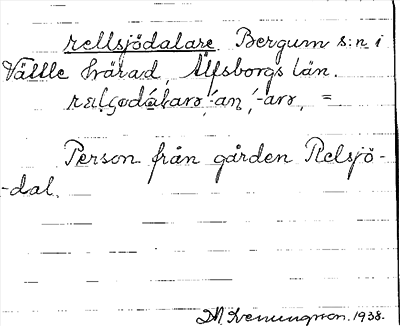 rellsjödalare Bergum s:n i
Vättle härad, Älfsborgs län.
-an, -arə, =
Person från gården Relsjö-
-dal.
1938.